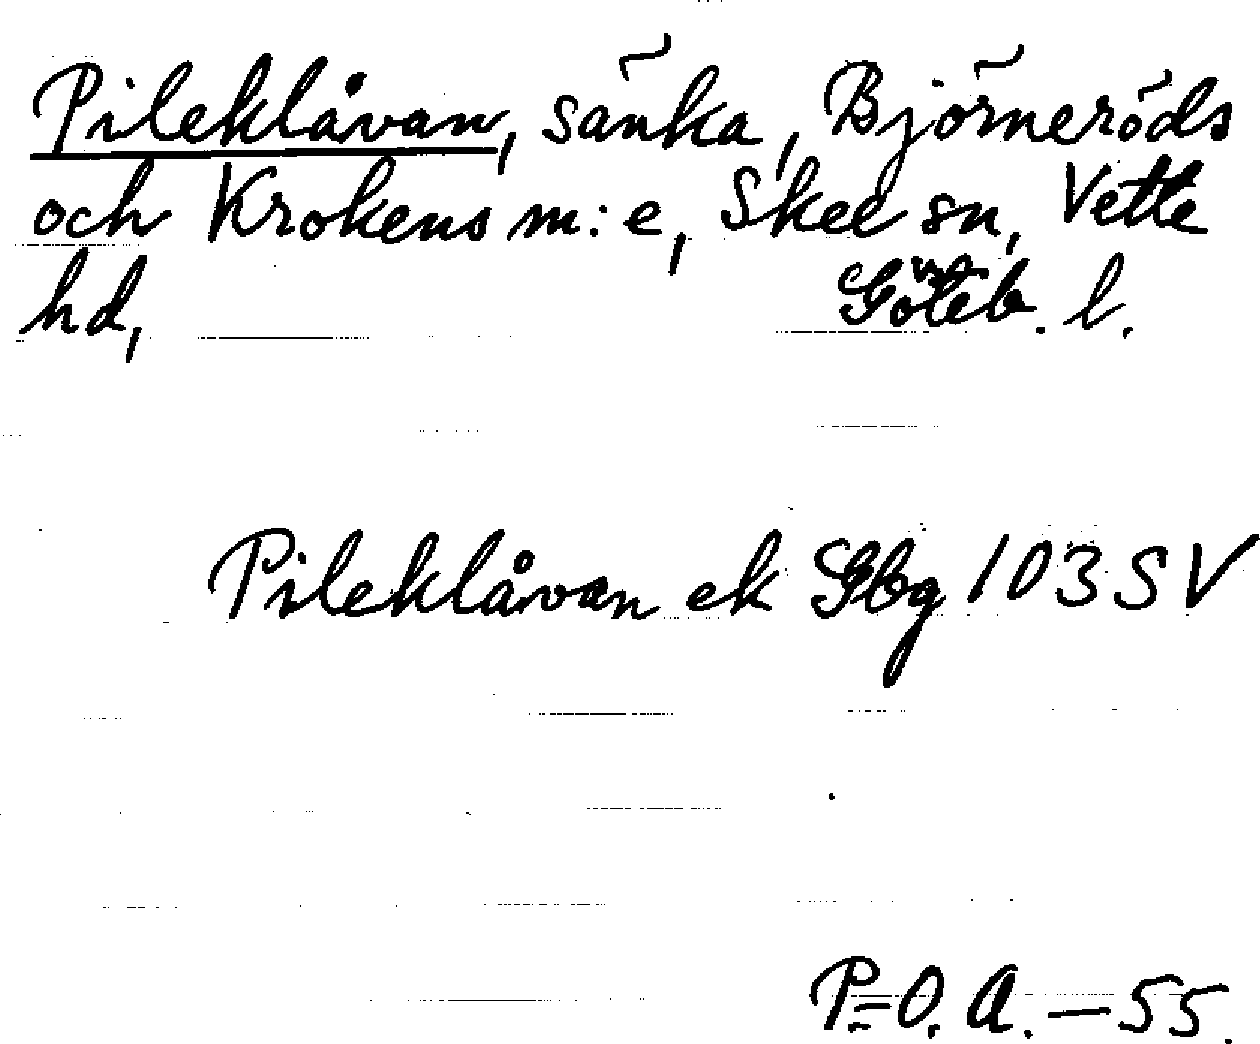 Pileklåvan, sänka, Björneröds
och Krokens m:e, Skee sn, Vette
hd, Göteb. l.
Pileklåvan ek Gbg 103 SV
P.=O. A. – 55.